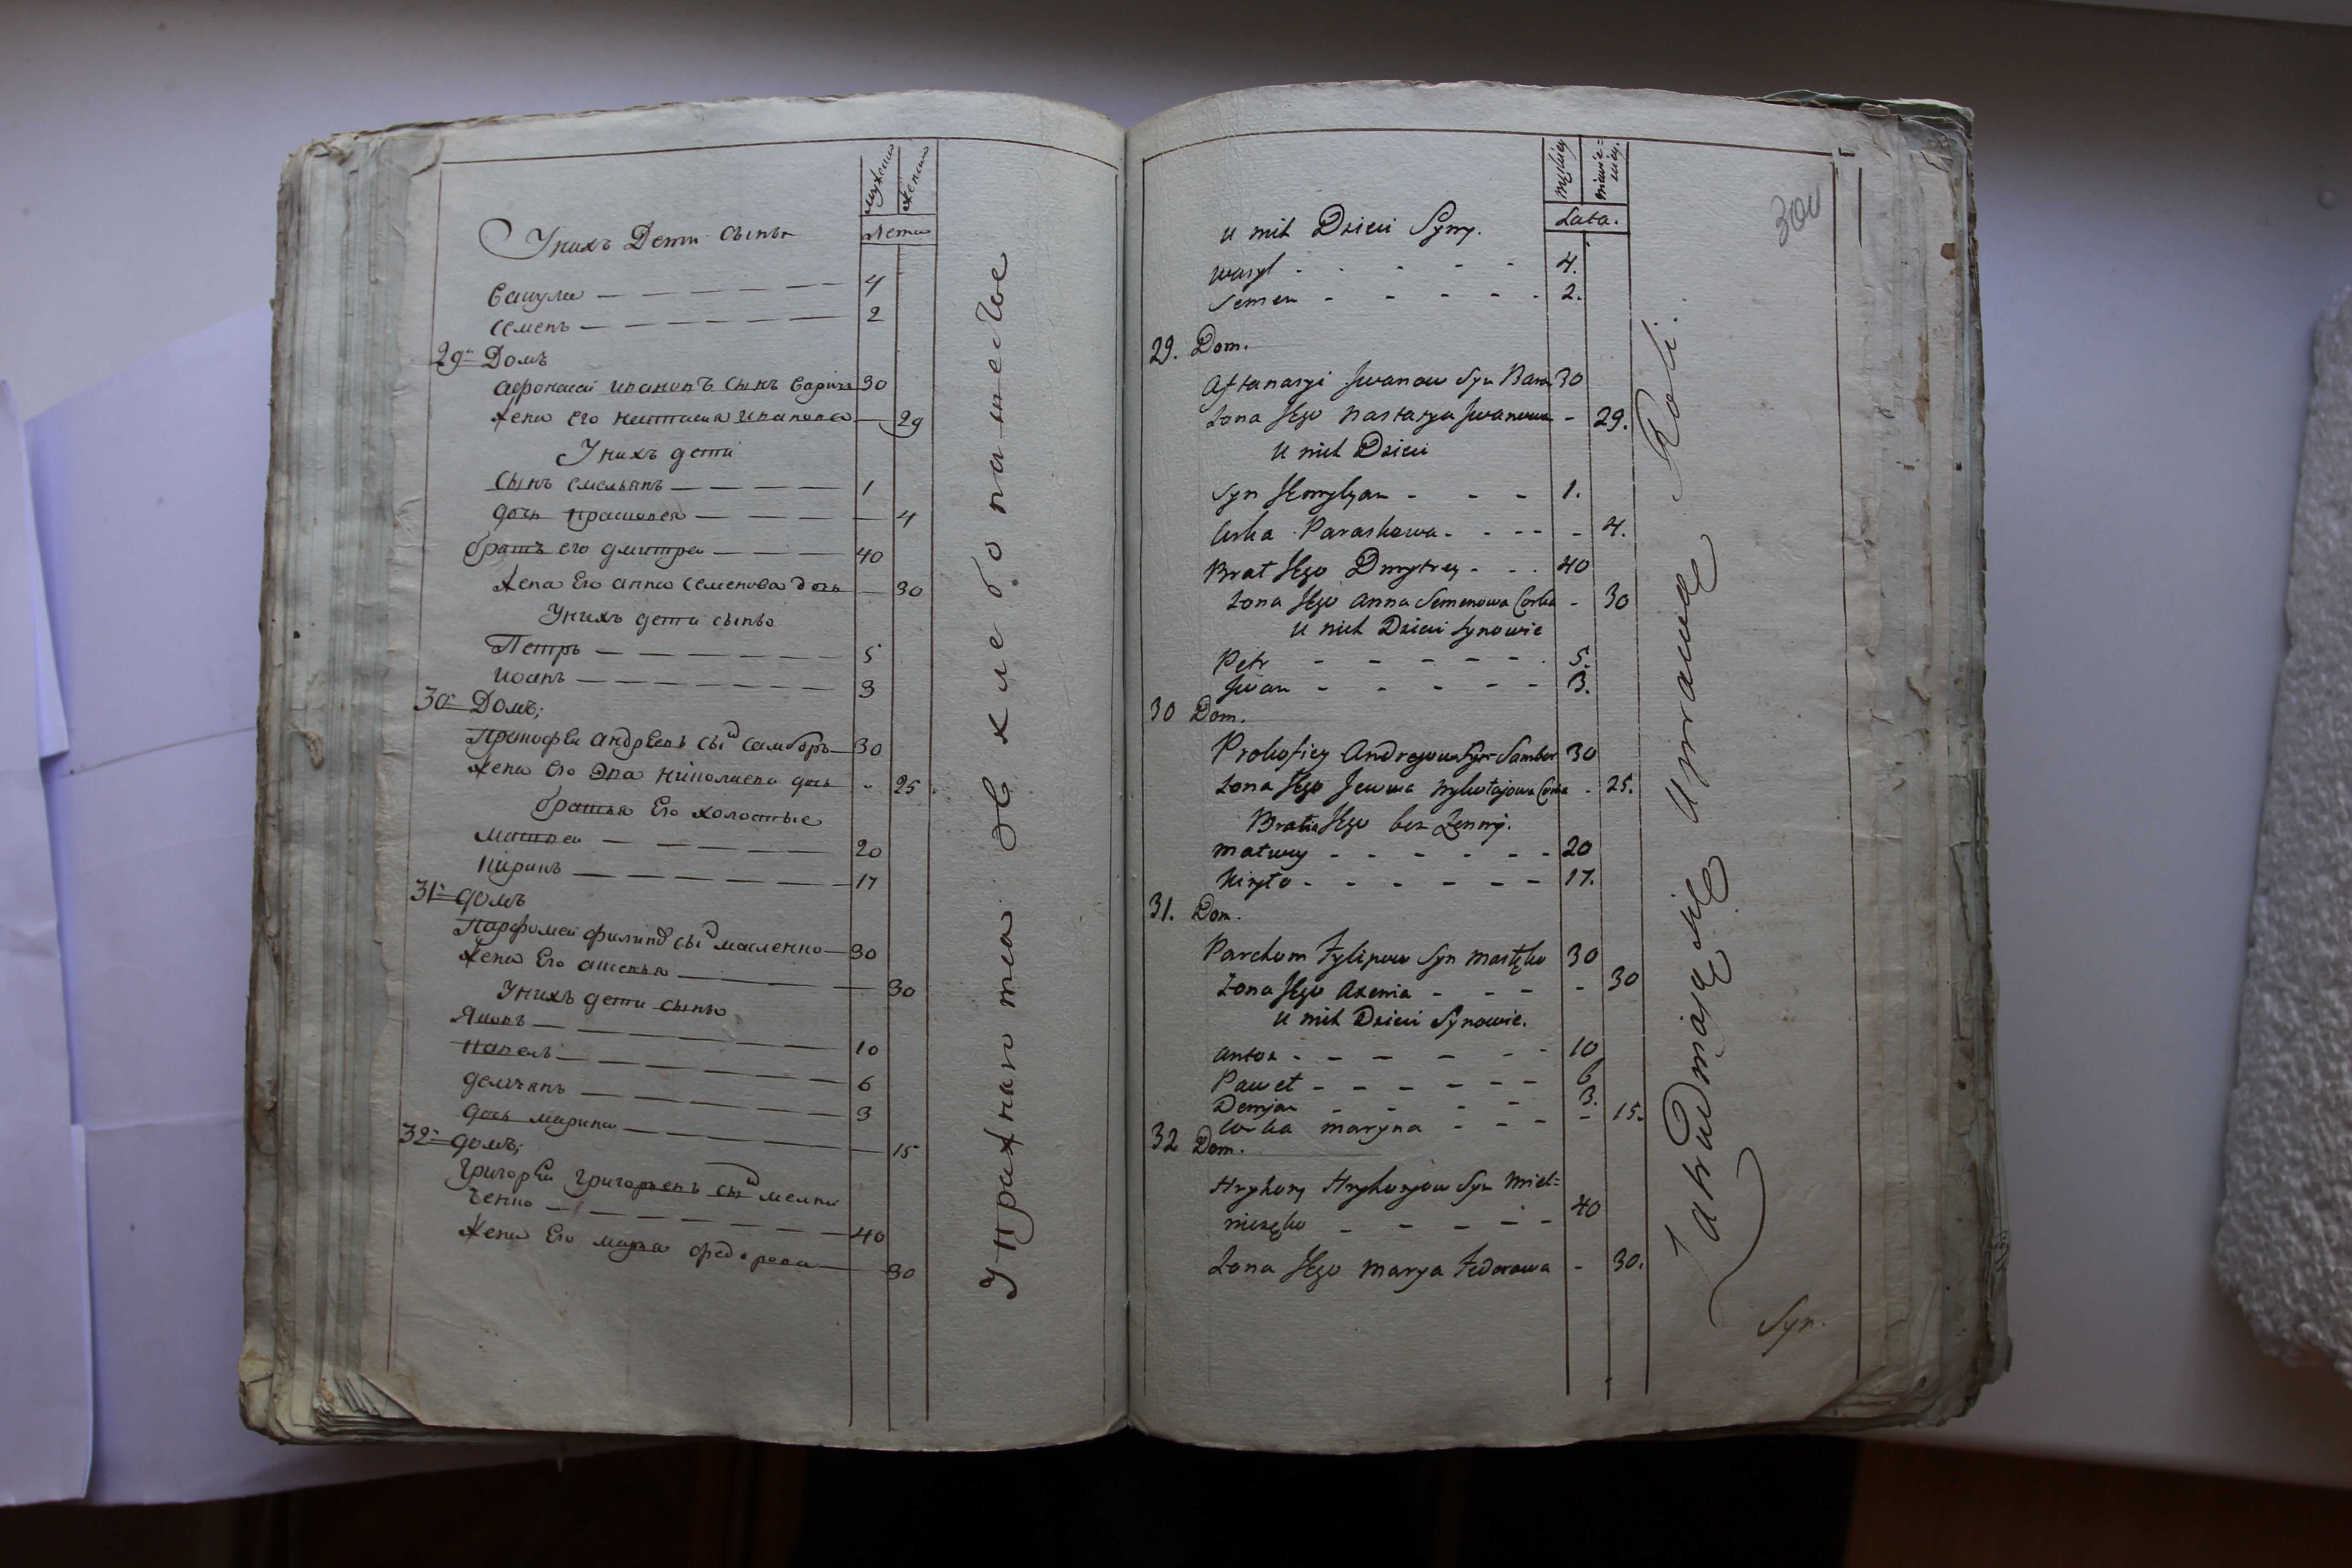 мужеска
женска
лета
У нихъ Дети сынъи
Василе 4
Семенъ 2
29й Домъ
Афонасей Ивановъ сынъ 30
Жена его Настасия Иванова 29
У нихъ дети
Сынъ Емельянъ 1
дочь Прасковея 4
братъ его Дмитреи 40
Жена Его Анна Семенова дочь 30
У нихъ дети сынъи
Петръ 5
Иоанъ 3
30й Домъ;
Прокофеи Андреевъ сынъ Самборъ 30
Жена Его Эва Николаева дочь 25
братья Его холостые
Матвеи 20
Кирилъ 17
31й домъ
Парфомеи Филиповъ сынъ масленко 30
Жена Его Аксенья 30
У нихъ дети сынъи
10
Павелъ 6
Демьянъ 3
дочь Марина 15
32й домъ;
Григореи Григорьевъ сынъ мелни
ченко 40
Жена Его Маря Федорова 30
Упражняютца в хлебопашестве
300
męskiey
Lata.
U nich Dzieci Syny.
Wasyl 4.
Semen 2.
29. Dom.
Aftanasyi Jwanow Syn 30
Zona Jego Nastasya Jwanowa - 29.
U nich Dzieci
Syn Jemylyan 1.
Corka Paraskowa - 4.
Brat Jego Dmytrey 40
Zona Jego Anna Semenowa Corka - 30
U nich Dzieci Synowie
Petr 5.
Jwan 3.
30 Dom.
Prokofiey Andrejow Syn Sambor 30
Zona Jego Jewwa Mykołajowa Corka - 25.
Bratia Jego bez Zenny.
Matwey 20
Kiryło 17.
31. Dom.
Parchom Fylipow Syn Masłęko 30
Zona Jego Axenia - 30
U nich Dzieci Synowie.
Anton 10
Paweł 6
Demjan 3.
Corka Maryna - 15.
32 Dom.
Hryhory Hryhoryow Syn Miel=
niczęko 40
Zona Jego Marya Fedorowa - 30.
Zatrudniają się Uprawą Roli.
Syn.